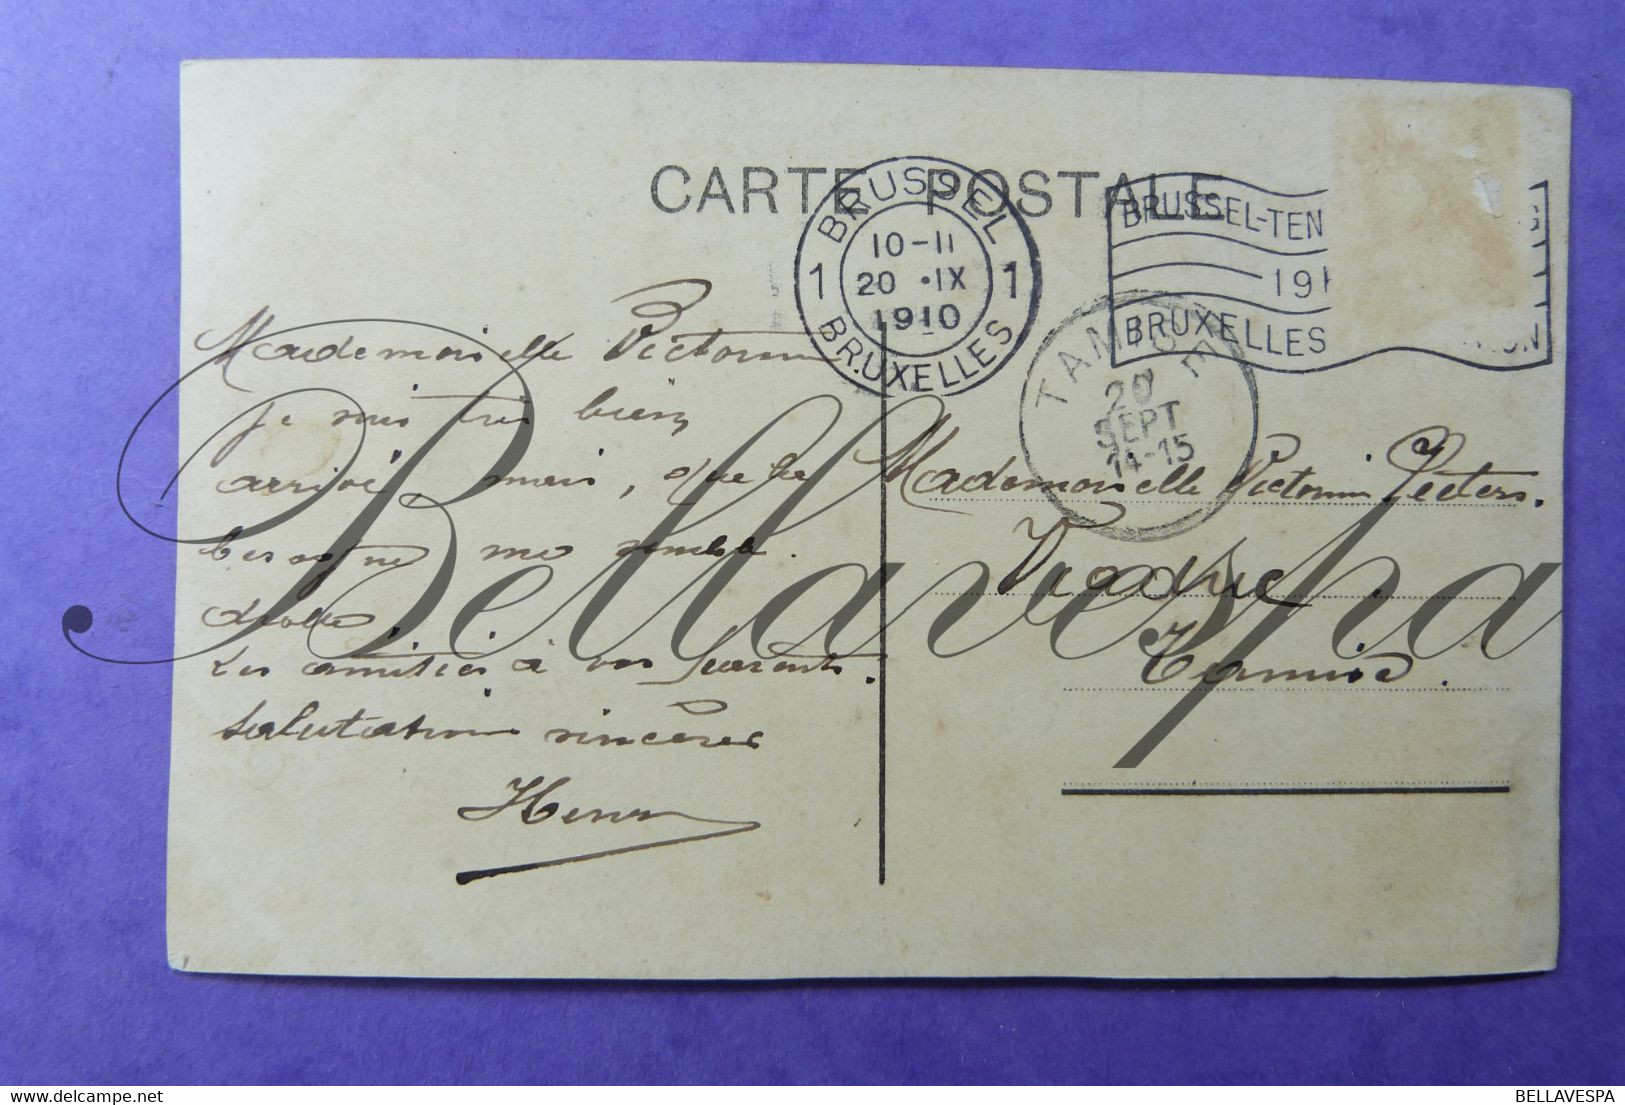 CARTE POSTALE
BRUSSEL
1 10-11 1
20 · IX
1910
BRUXELLES
BRUSSEL-TEN
191
BRUXELLES
TAMI
20
SEPT
14-15
Mademoiselle Victorine
je suis très bien
arrivé, mais, que la
besogne me semble
drôle.
Les amitiés à vos parents.
Salutations sincères
Henri
Mademoiselle Victorine Peeters.
Viaduc
Tamise.
Bellavespa
BELLAVESPA